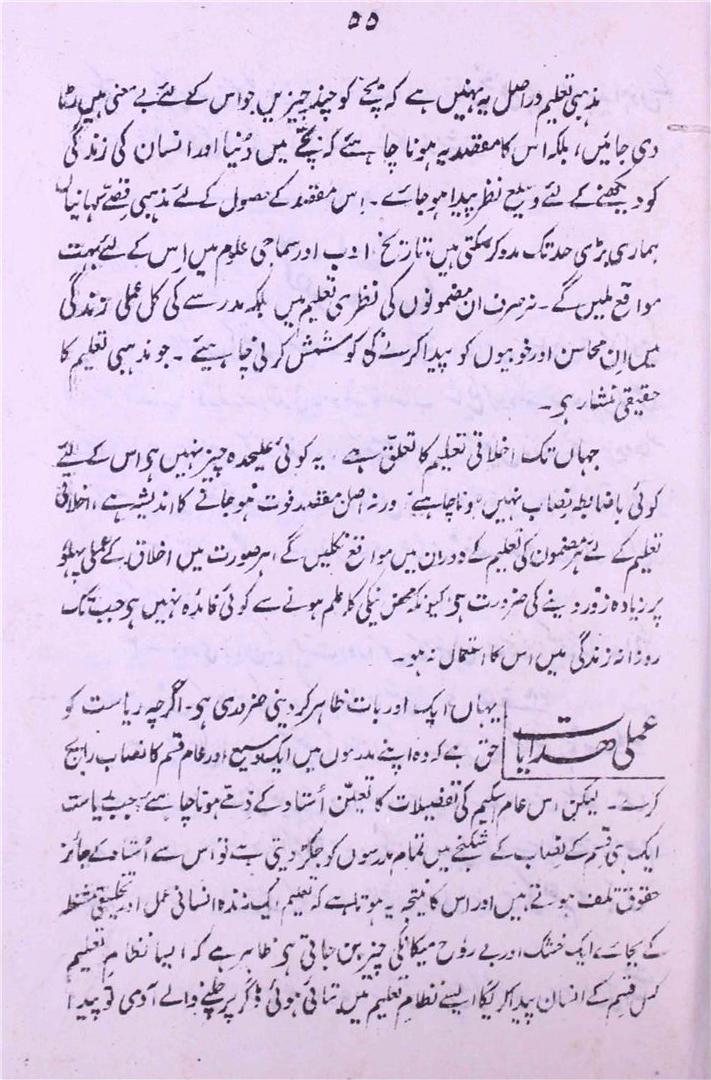 ۵۵
مذہبی تعلیم دراصل یہ نہیں ہے کہ بچے کو چند چیزیں جو اس کے لئے بے معنی ہیں رٹا
دی جائیں، بلکہ اس کا مقصد یہ ہونا چاہئے کہ بچے میں دُنیا اور انسان کی زندگی
کو دیکھنے کے لئے وسیع نظر پیدا ہو جائے۔ اس مقصد کے حصول کے لئے مذہبی قصے کہانیاں
ہماری بڑی حد تک مدد کر سکتی ہیں؛ تاریخ، ادب اور سماجی علوم میں اِس کے لئے بہت
مواقع ملیں گے۔ نہ صرف ان مضمونوں کی نظری تعلیم میں بلکہ مدرسے کی کل عملی زندگی
میں اِن محاسن اور خوبیوں کو پیدا کرنے کی کوشش کرنی چاہیئے۔ جو مذہبی تعلیم کا
حقیقی منشار ہو۔
جہاں تک اخلاقی تعلیم کا تعلق ہے یہ کوئی علیحدہ چیز نہیں ہی اس کے لئے
کوئی باضابطہ نصاب نہیں ہونا چاہیے ورنہ اصل مقصد فوت ہو جانے کا اندیشہ ہے، اخلاقی
تعلیم کے لئے ہر مضمون کی تعلیم کے دوران میں مواقع نکلیں گے، ہر صورت میں اخلاق کے عملی پہلو
پر زیادہ زور دینے کی ضرورت ہی کیونکہ محض نیکی کا علم ہونے سے کوئی فائدہ نہیں ہی جب تک
روزانہ زندگی میں اس کا استعمال نہ ہو۔
عملی ہدایات
یہاں ایک اور بات ظاہر کر دینی ضروری ہو۔ اگرچہ ریاست کو
حق ہے کہ وہ اپنے مدرسوں میں ایک وسیع اور عام قسم کا نصاب رایج
کرے۔ لیکن اس عام اسکیم کی تفصیلات کا تعلق اُستاد کے ذمے ہونا چاہئے جب ریاست
ایک ہی قسم کے نصاب کے شکنجے میں تمام مدرسوں کو جکڑ دیتی ہے تو اس سے اُستاد کے جائز
حقوق تلف ہوتے ہیں اور اس کا نتیجہ یہ ہوتا ہے کہ تعلیم ایک زندہ انسانی عمل اور تخلیقی مشغلہ
کے بجائے، ایک خشک اور بے روح میکانکی چیز بن جاتی ہی ظاہر ہے کہ ایسا نظام تعلیم
کس قسم کے انسان پیدا کریگا ایسے نظام تعلیم میں بتائی ہوئی ڈگر پر چلنے والے آدمی تو پیدا